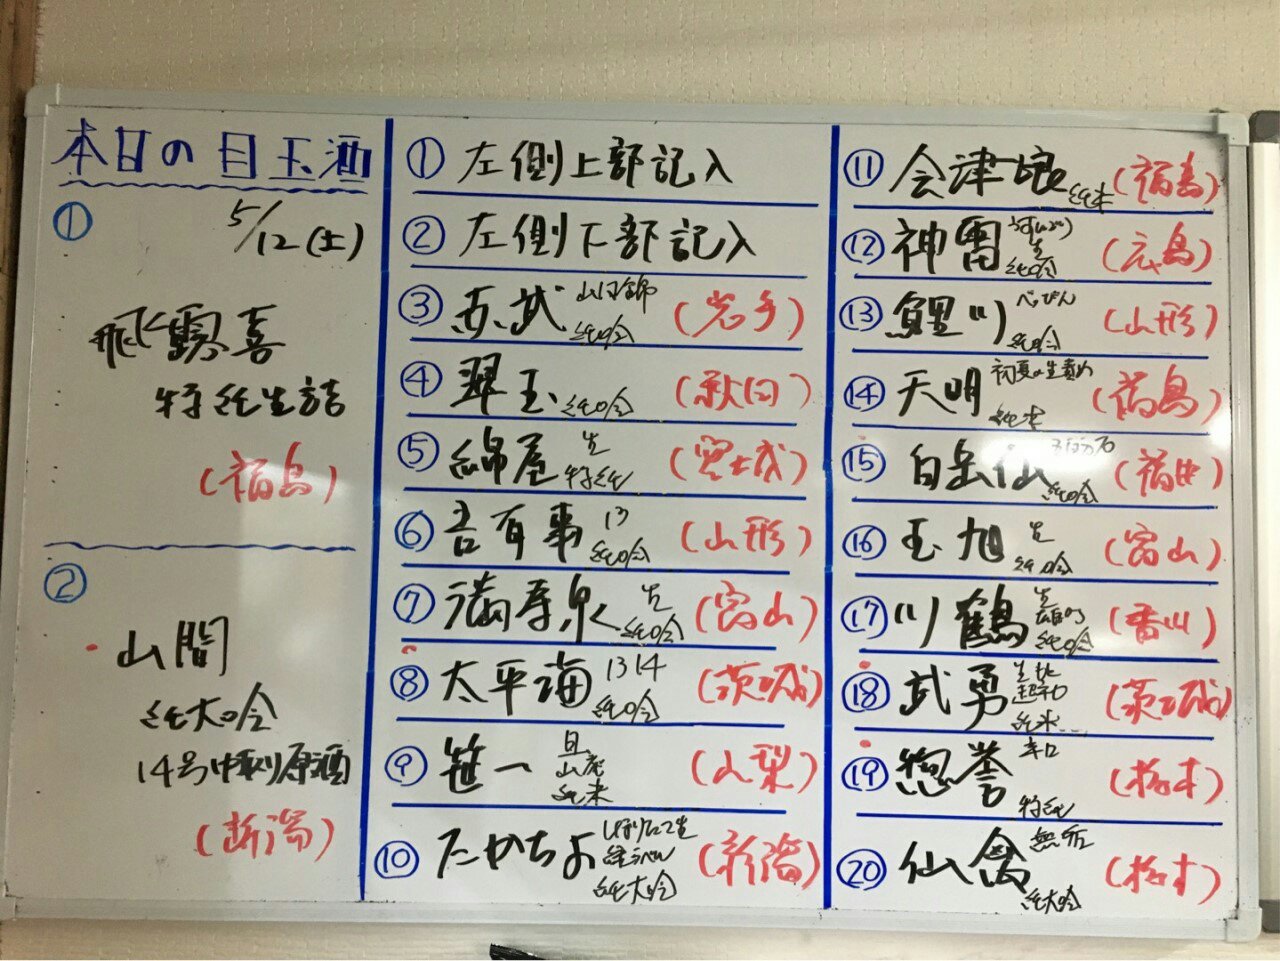 本日の目玉酒
① 5/12(土)
飛露喜
特純生詰
(福島)
②
山間
純大吟
14号中取り原酒
(新潟)
① 左側上部記入
② 左側下部記入
③ 赤武 山田錦 純吟 (岩手)
④ 翠玉 純吟 (秋田)
⑤ 綿屋 生 特純 (宮城)
⑥ 吾有事 13 純吟 (山形)
⑦ 満寿泉 生 純吟 (富山)
⑧ 太平海 1314 純吟 (茨城)
⑨ 笹一 旦 山廃 純米 (山梨)
⑩ たかちよ しぼりたて生 純大吟 (新潟)
⑪ 会津娘 純米 (福島)
⑫ 神雷 生 純吟 (広島)
⑬ 鯉川 べっぴん 純吟 (山形)
⑭ 天明 初夏の生 純米 (福島)
⑮ 白岳仙 五百万石 純吟 (福井)
⑯ 玉旭 生 純吟 (富山)
⑰ 川鶴 生 雄町 純吟 (香川)
⑱ 武勇 生酛 超辛口 純米 (茨城)
⑲ 惣誉 辛口 特純 (栃木)
⑳ 仙禽 無垢 純大吟 (栃木)